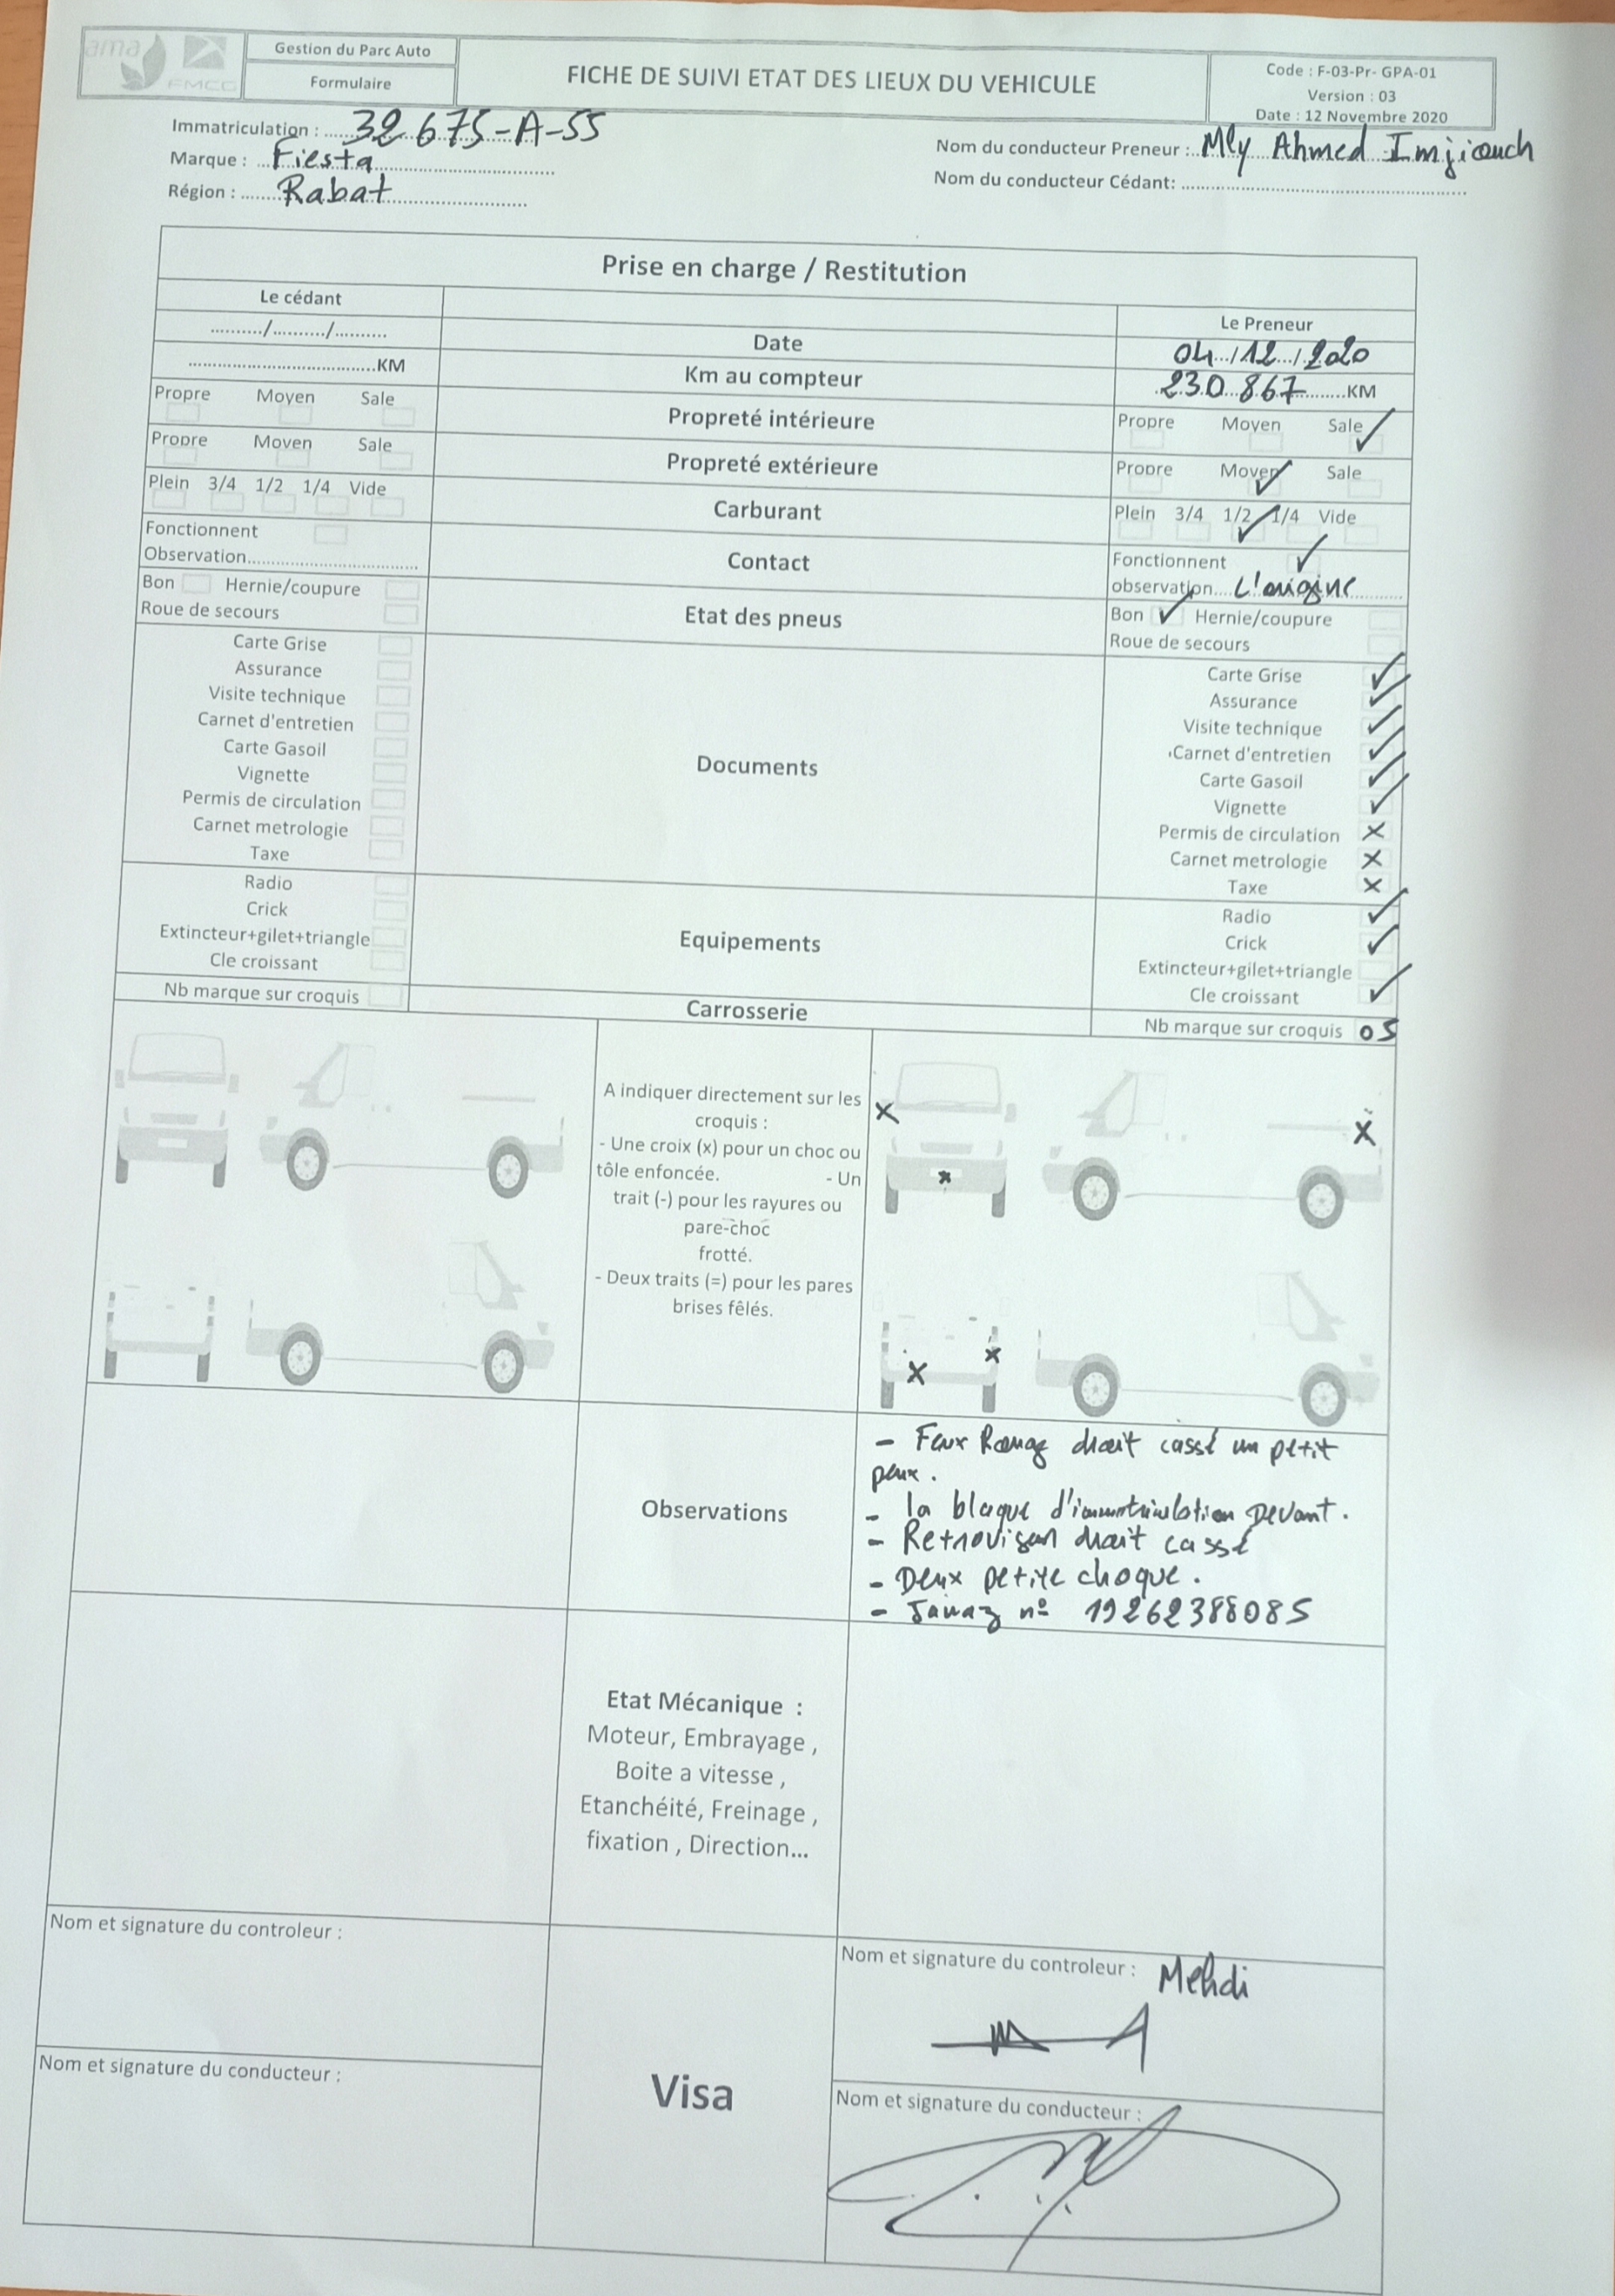 ama
FMCG
Gestion du Parc Auto
Formulaire
FICHE DE SUIVI ETAT DES LIEUX DU VEHICULE
Code : F-03-Pr- GPA-01
Version : 03
Date : 12 Novembre 2020
Immatriculation : 32675-A-55
Marque : Fiesta
Région : Rabat
Nom du conducteur Preneur : Mly Ahmed Imjiouch
Nom du conducteur Cédant:
Prise en charge / Restitution
Le cédant
Le Preneur
........../........../.......... Date 04/12/2020
KM Km au compteur 230.867 KM
Propre Moyen Sale Propreté intérieure Propre Moyen Sale ✓
Propre Moyen Sale Propreté extérieure Propre Moyen ✓ Sale
Plein 3/4 1/2 1/4 Vide Carburant Plein 3/4 1/2 ✓ 1/4 Vide
Fonctionnent Contact Fonctionnent ✓
Observation observation L'origine
Bon Hernie/coupure Etat des pneus Bon ✓ Hernie/coupure
Roue de secours Roue de secours
Carte Grise
Assurance
Visite technique
Carnet d'entretien
Carte Gasoil
Vignette
Permis de circulation
Carnet metrologie
Taxe
Documents
Carte Grise ✓
Assurance ✓
Visite technique ✓
Carnet d'entretien ✓
Carte Gasoil ✓
Vignette ✓
Permis de circulation x
Carnet metrologie x
Taxe x
Radio
Crick
Extincteur+gilet+triangle
Cle croissant
Equipements
Radio ✓
Crick ✓
Extincteur+gilet+triangle
Cle croissant ✓
Nb marque sur croquis Carrosserie Nb marque sur croquis 05
A indiquer directement sur les
croquis :
- Une croix (x) pour un choc ou
tôle enfoncée. - Un
trait (-) pour les rayures ou
pare-choc
frotté.
- Deux traits (=) pour les pares
brises fêlés.
Observations
- Feux Rouge droit cassé un petit
peux.
- la blaque d'immatriculation Devant.
- Retrovisur droit cassé
- Deux petite choque.
- Jawaz n° 19262388085
Etat Mécanique :
Moteur, Embrayage ,
Boite a vitesse ,
Etanchéité, Freinage ,
fixation , Direction...
Nom et signature du controleur :
Nom et signature du conducteur :
Visa
Nom et signature du controleur : Mehdi
Nom et signature du conducteur :